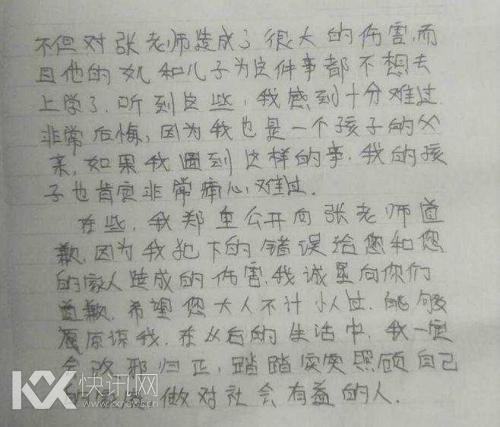 不但对张老师造成了很大的伤害,而
且他的女儿和儿子为这件事都不想去
上学了.听到这些,我感到十分难过
非常后悔,因为我也是一个孩子的父
亲,如果我遇到这样的事.我的孩
子也肯定非常痛心,难过.
在些,我郑重公开向张老师道
歉,因为我犯下的错误给您和您
的家人造成的伤害,我诚恳向你们
道歉.希望您大人不计小人过.能够
原谅我.在以后的生活中,我一定
会改邪归正,踏踏实实照顾自己
做对社会有益的人.
KX快讯网